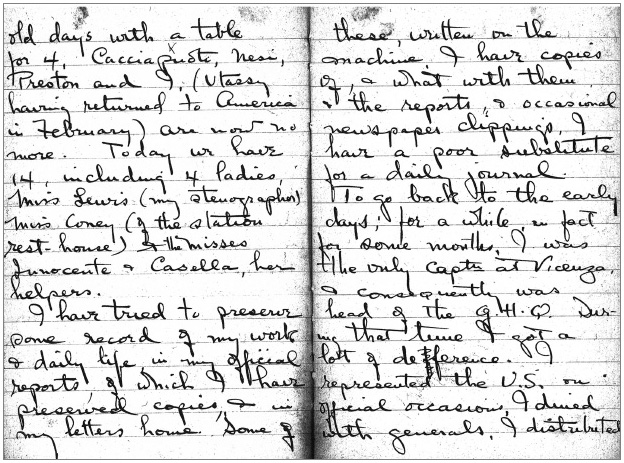 old days with a table
for 4, Cacciapuoti, Nesi,
Preston and I, (Utassy
having returned to America
in February) are now no
more. Today we have
14, including 4 ladies,
Miss Lewis (my stenographer)
Miss Coney (of the station
rest-house) & the misses
Innocente & Casella, her
helpers.
I have tried to preserve
some record of my work
& daily life in my official
reports, of which I have
preserved copies, & in
my letters home. Some of
these, written on the
machine, I have copies
of, & what with them
& the reports, & occasional
newspaper clippings, I
have a poor substitute
for a daily journal.
To go back to the early
days; for a while, in fact
for some months, I was
the only Captn at Vicenza,
& consequently was
head of the G.H.Q. Dur-
ing that time I got a
lot of deference. I
represented the U.S. on
official occasions, I dined
with generals, I distributed